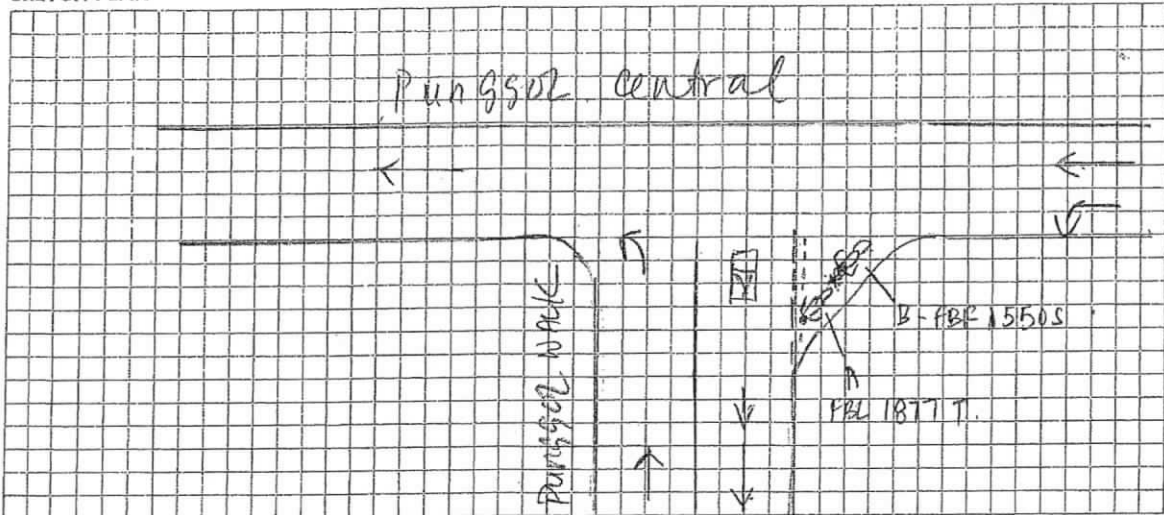 Punggol central
PUNGGOL WALK
B - FBF 1550S
FBL 1877 T.